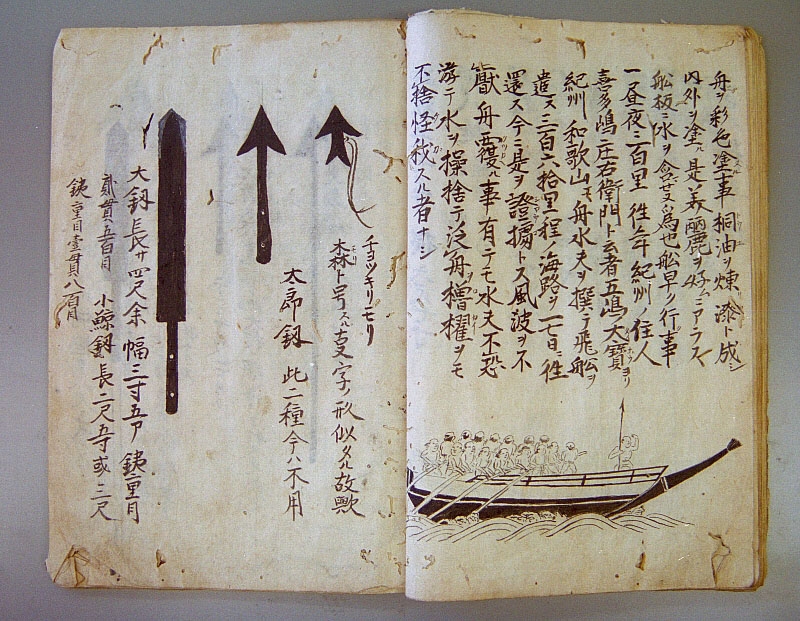 舟ヲ彩色塗事桐油ヲ煉漆ト成シ
内外ヲ塗ル是美麗ヲ好ムニアラス
船板ニ水ヲ含セシメサル為也船早ク行事
一昼夜ニ百里往年紀州ノ住人
喜多嶋庄右衛門ト云者五嶋大寶ヨリ
紀州和歌山エ舟水夫ヲ撰テ飛船ヲ
遣ス三百六拾里程ノ海路ヲ一七日ニ往
還ス今ニ是ヲ證拠トス風波ヲ不
厭舟覆ル事有テモ水夫不恐
游テ水ヲ操捨テ泛舟櫓櫂ヲモ
不捨怪我スル者ナシ
チヨツキリモリ
森ト号スル支字ノ形似タル故歟
太郎釼此二種今ハ不用
大釼長サ四尺余幅三寸五分銕重目
貳貫五百目
小鯨釼長二尺五寸或三尺
銕重目壹貫八百目